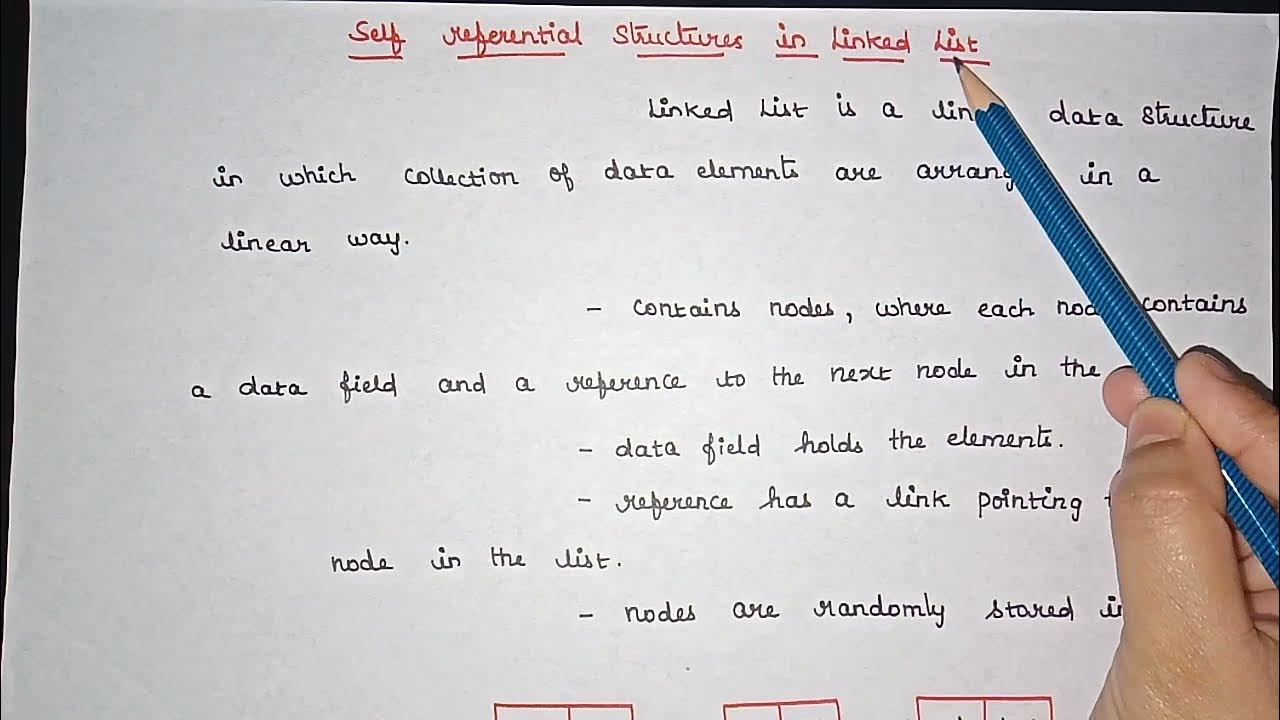 Self referential Structures in Linked List
Linked List is a lin data structure
in which collection of data elements are arrang in a
linear way.
- contains nodes, where each nod contains
a data field and a reference to the next node in the
- data field holds the elements.
- reference has a link pointing
node in the list.
- nodes are randomly stored in